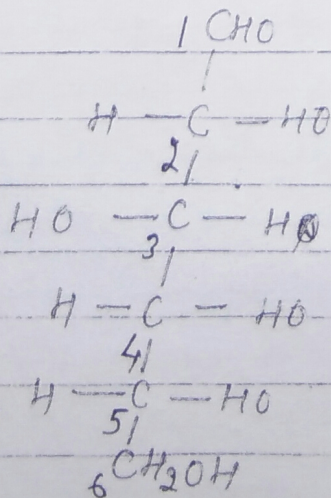 1 CHO
H — C — HO
2
HO — C — H
3
H — C — HO
4
H — C — HO
5
6 CH2OH